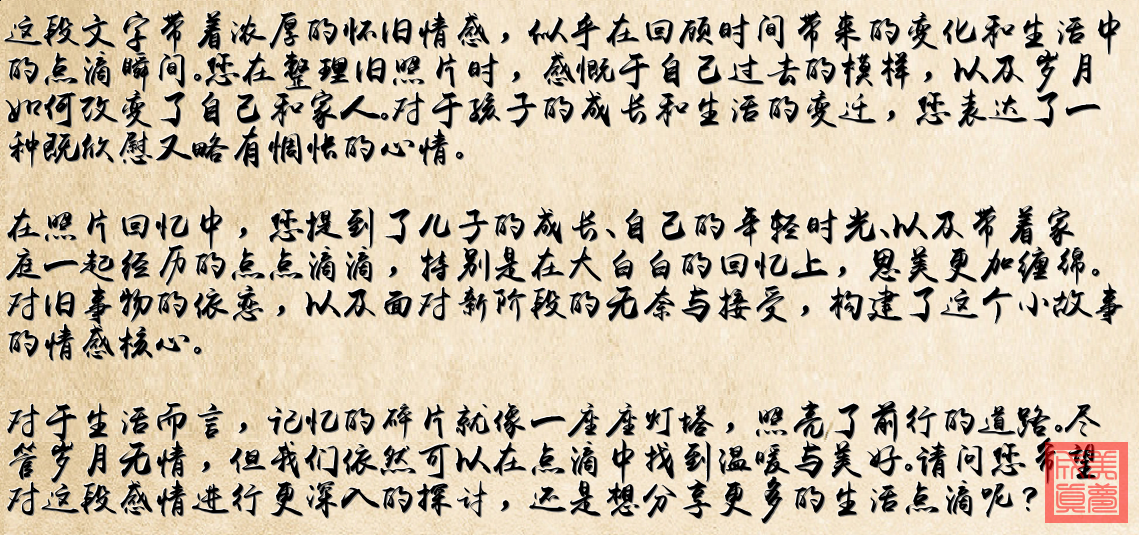 这段文字带着浓厚的怀旧情感，似乎在回顾时间带来的变化和生活中
的点滴瞬间。您在整理旧照片时，感慨于自己过去的模样，以及岁月
如何改变了自己和家人。对于孩子的成长和生活的变迁，您表达了一
种既欣慰又略有惆怅的心情。
在照片回忆中，您提到了儿子的成长、自己的年轻时光、以及带着家
庭一起经历的点点滴滴，特别是在大白白的回忆上，思美更加缠绵。
对旧事物的依恋，以及面对新阶段的无奈与接受，构建了这个小故事
的情感核心。
对于生活而言，记忆的碎片就像一座座灯塔，照亮了前行的道路。尽
管岁月无情，但我们依然可以在点滴中找到温暖与美好。请问您希望
对这段感情进行更深入的探讨，还是想分享更多的生活点滴呢？